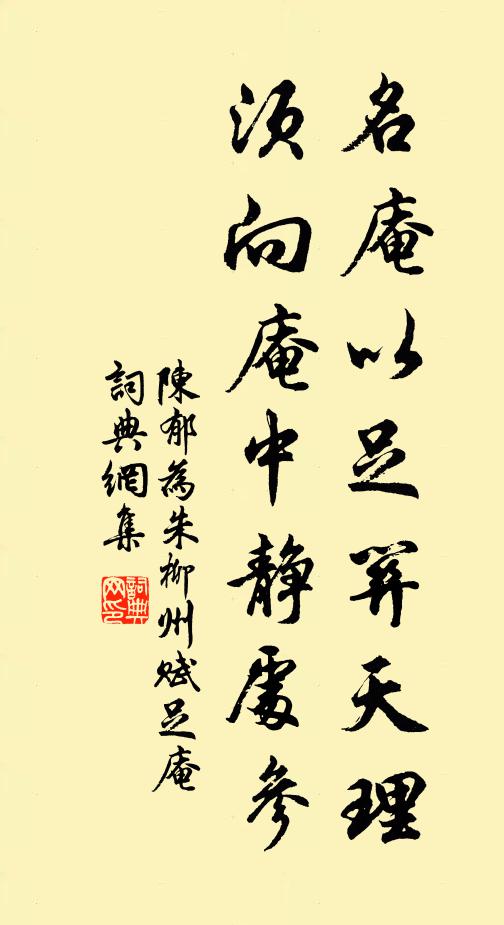 名庵以足羿天理
須向庵中靜處參
陳郁為朱柳州賦足庵
詞典網集
詞典
網印